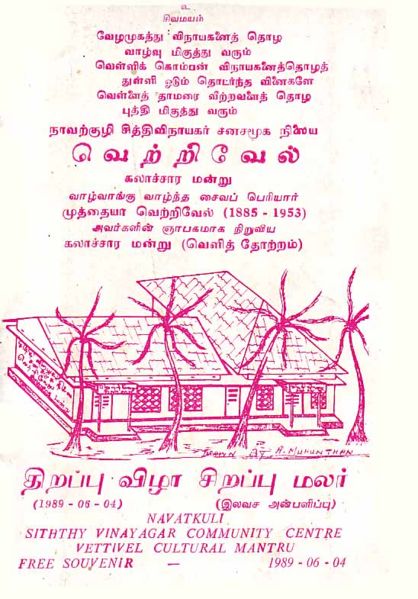 உ
சிவமயம்
வேழமுகத்து விநாயகனைத் தொழ
வாழ்வு மிகுத்து வரும்
வெள்ளிக் கொம்பன் விநாயகனைத்தொழத்
துள்ளி ஓடும் தொடர்ந்த வினைகளே
வெள்ளைத் தாமரை வீற்றவளைத் தொழ
புத்தி மிகுத்து வரும்
நாவற்குழி சித்திவிநாயகர் சனசமூக நிலைய
வெற்றிவேல்
கலாச்சார மன்று
வாழ்வாங்கு வாழ்ந்த சைவப் பெரியார்
முத்தையா வெற்றிவேல் (1885 - 1953)
அவர்களின் ஞாபகமாக நிறுவிய
கலாச்சார மன்று (வெளித் தோற்றம்)
DRAWN BY. A. MUHUNTHAN
திறப்பு விழா சிறப்பு மலர்
(1989 - 06 - 04) (இலவச அன்பளிப்பு)
NAVATKULI
SITHTHY VINAYAGAR COMMUNITY CENTRE
VETTIVEL CULTURAL MANTRU
FREE SOUVENIR — 1989 - 06 - 04